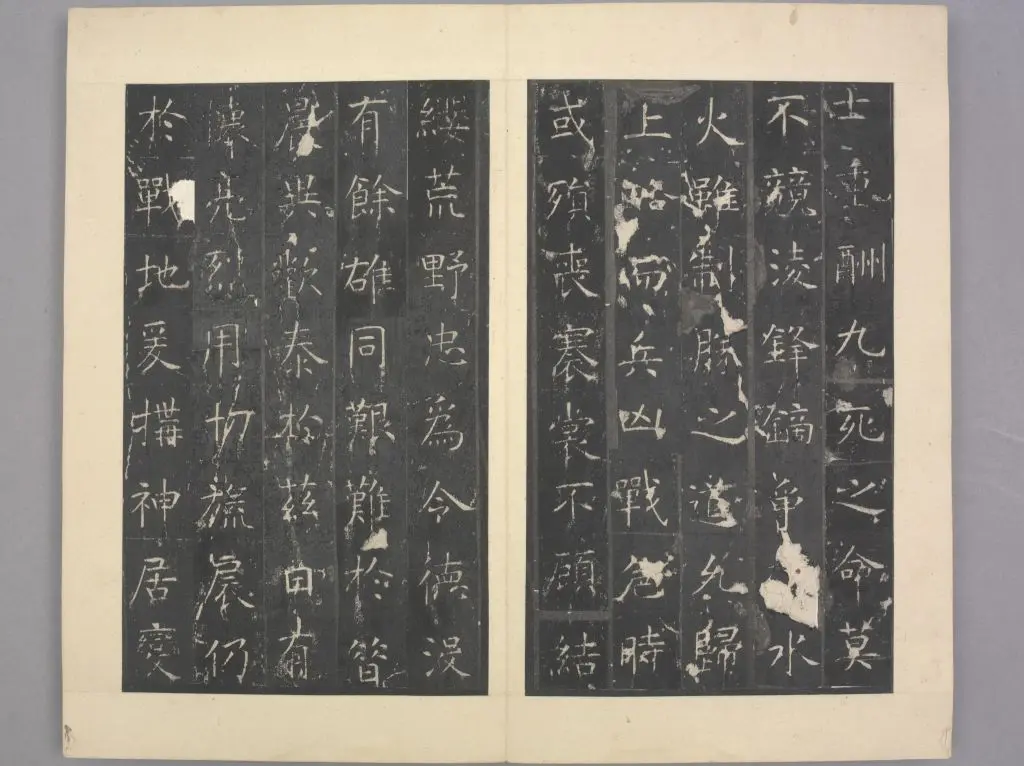 士重酬九死之命莫
不競凌鋒鏑争水
火雖制勝之道允歸
上略而兵凶戰危時
或殞喪褰裳不顧結
纓荒野忠為令德没
有餘雄同艱難於昔
晨異歡泰於茲日有
懷亮烈用切旒扆仍
於戰地爰構神居變